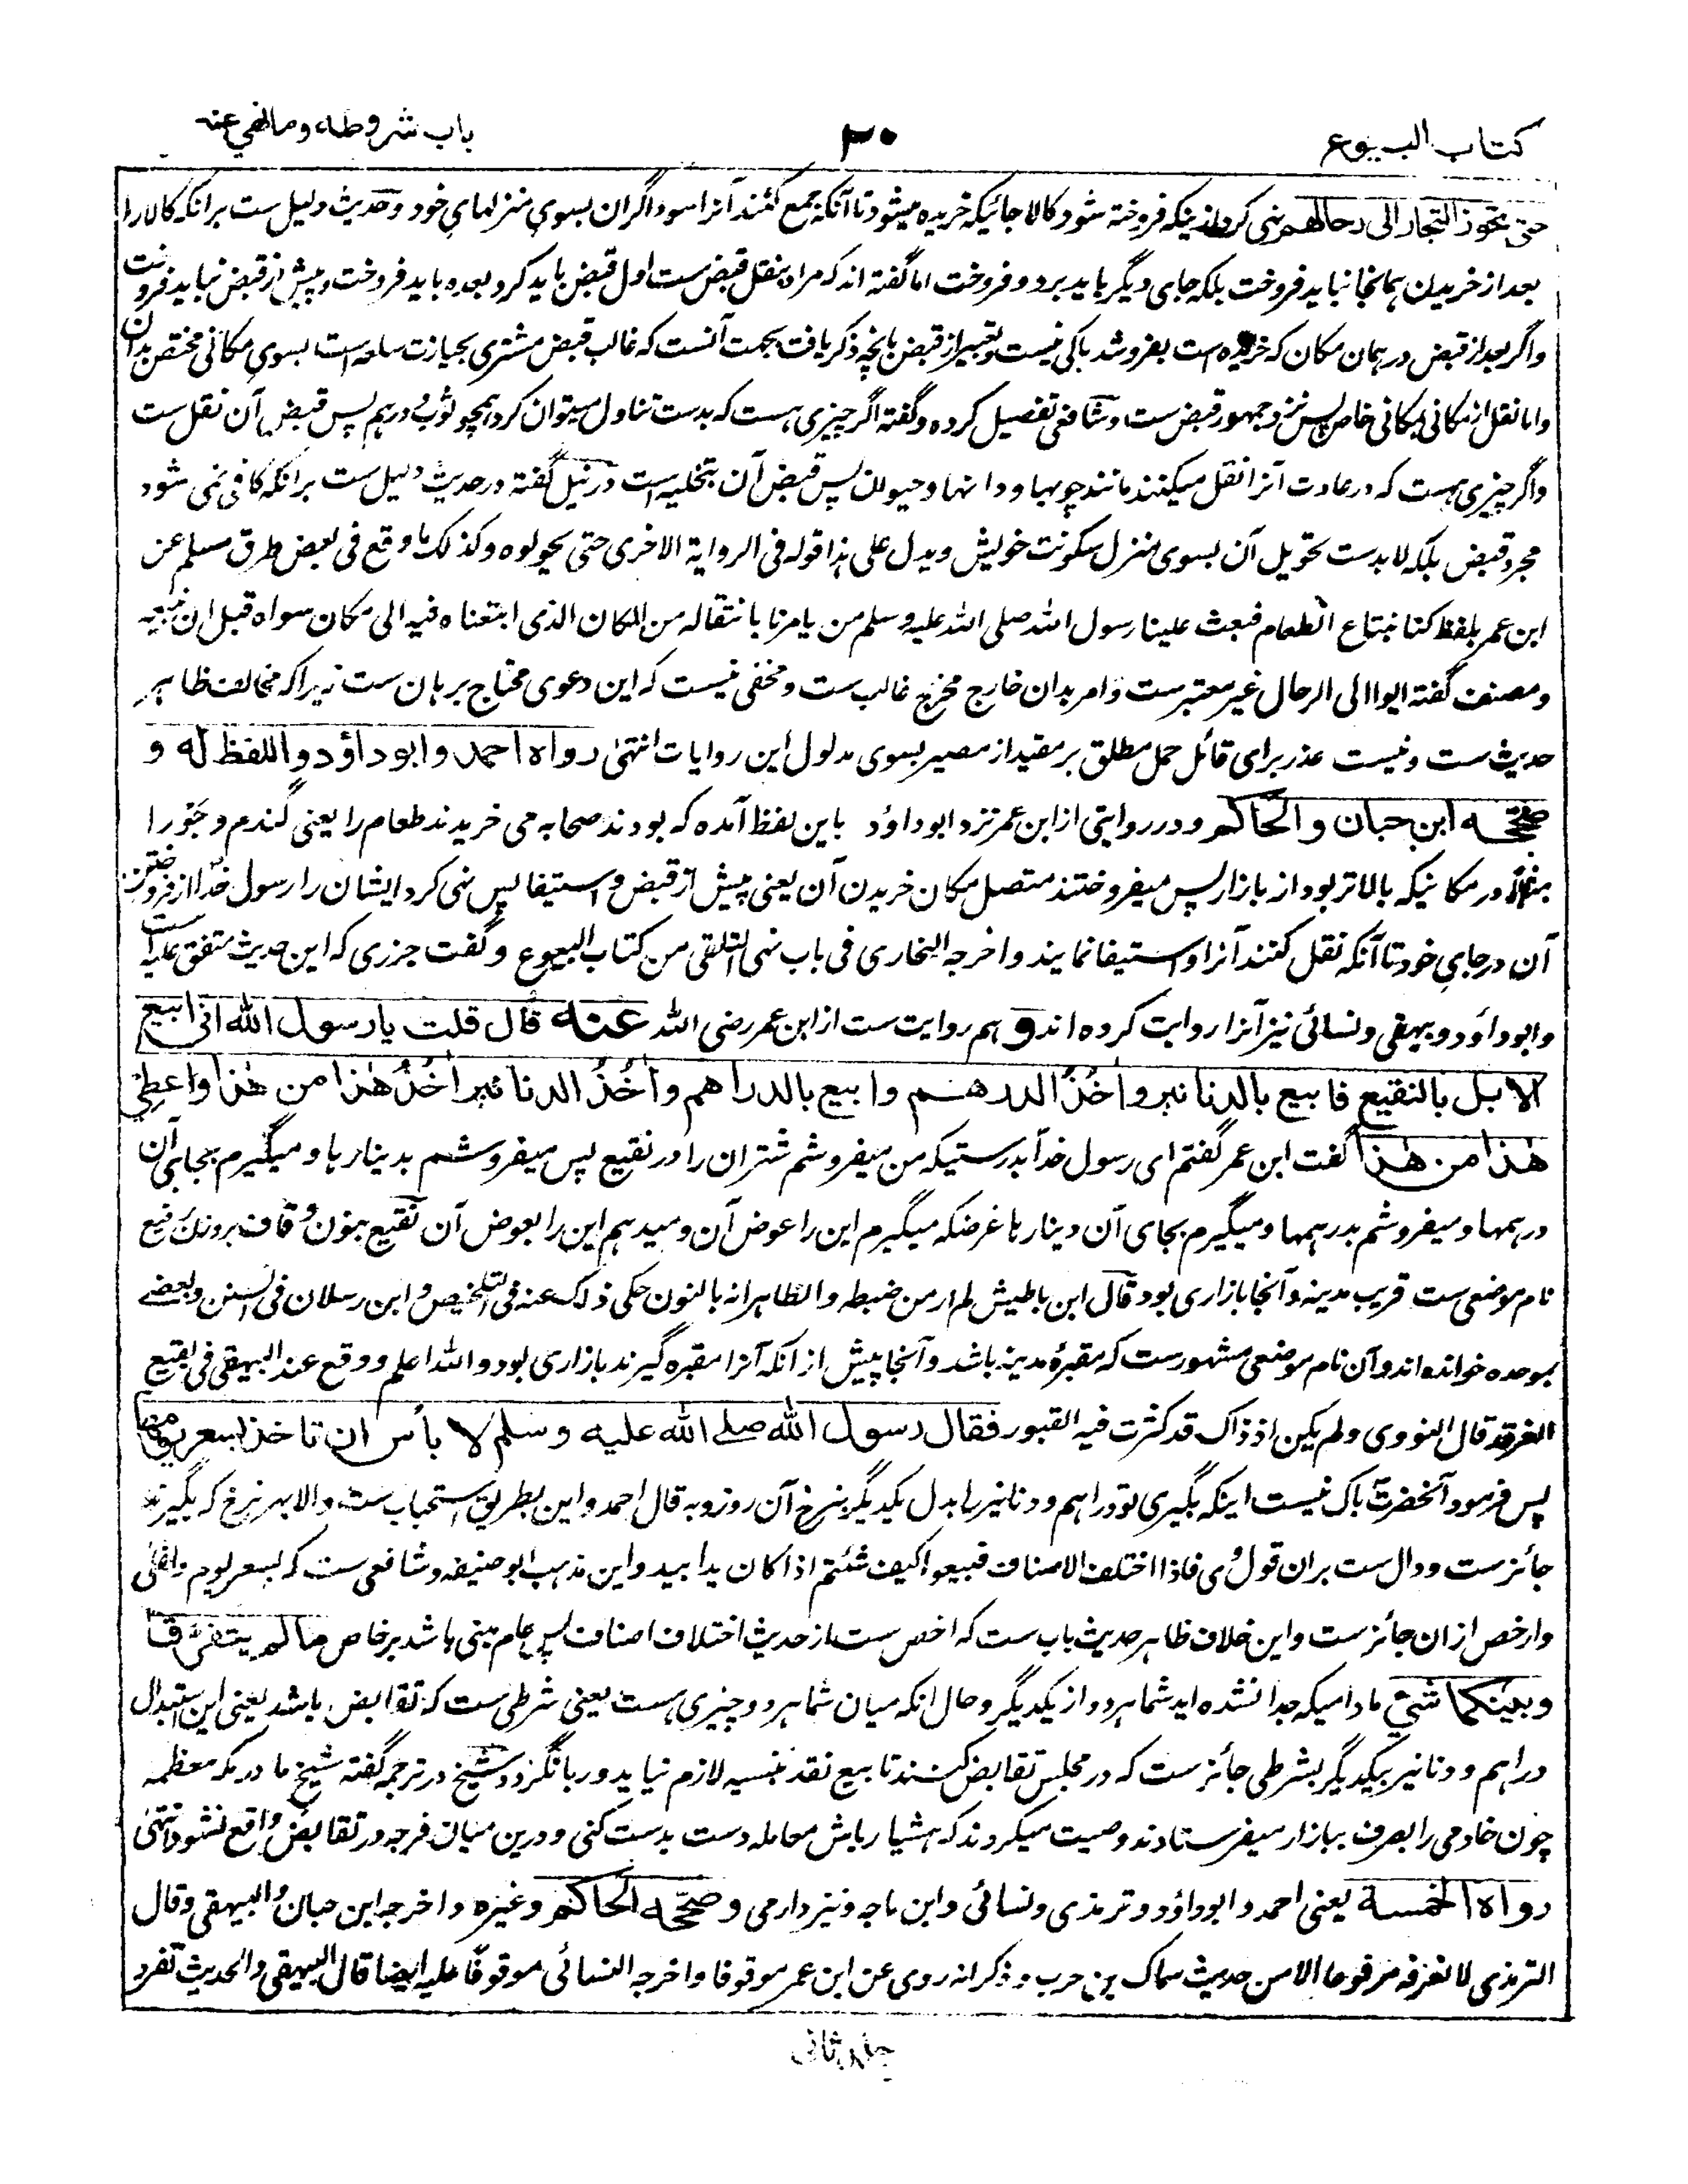 کتاب البیوع
۳۰
باب شروطه وما نهی عنه
حتی تحوز التجار الی رحالهم نهی کرد ازینکه فروخته شود کالا جائیکه خریده میشود تا آنکه جمع کنند آنرا سوداگران بسوی منزلهای خود وحدیث دلیل ست برانکه کالا را
بعد از خریدن همانجا نباید فروخت بلکه جای دیگر باید برد و فروخت اما گفته اند که مراد بنقل قبض ست اول قبض باید کرد بعده باید فروخت و پیش از قبض نباید فروخت
واگر بعد از قبض در همان مکان که خریده است بفروشد باکی نیست و تعبیر از قبض بانچه ذکر یافت بجهت آنست که غالب قبض مشتری بحیازت سلعه است بسوی مکانی مختص بدان
واما نقل از مکانی بمکانی خاص پس نزد جمهور قبض ست و شافعی تفصیل کرده و گفته اگر چیزی هست که بدست تناول میتوان کرد همچو ثوب و درهم پس قبض آن نقل ست
واگر چیزی هست که در عادت آنرا نقل میکنند مانند چوبها و دانها و حیوان پس قبض آن بتخلیه است در نیل گفته در حدیث دلیل ست برانکه کافی نمی شود
مجرد قبض بلکه لابدست تحویل آن بسوی منزل سکونت خویش ویدل علی هذا قوله فی الروایة الاخری حتی یحولوه وکذلک ما وقع فی بعض طرق مسلم عن
ابن عمر بلفظ کنا نبتاع الطعام فبعث علینا رسول الله صلی الله علیه وسلم من یامرنا بانتقاله من المکان الذی ابتعناه فیه الی مکان سواه قبل ان نبیعه
ومصنف گفته ایوا الی الرحال غیر معتبرست وامر بدان خارج مخرج غالب ست ومخفی نیست که این دعوی محتاج برهان ست زیرا که مخالف ظاهر
حدیث ست ونیست عذر برای قائل حمل مطلق بر مقید از مصیر بسوی مدلول این روایات انتهی رواه احمد وابو داؤد واللفظ له و
صححه ابن حبان والحاکم ودر روایتی از ابن عمر نزد ابوداؤد باین لفظ آمده که بودند صحابه می خریدند طعام را یعنی گندم وجو را
مثلاً در مکانیکه بالاتر بود از بازار پس میفروختند متصل مکان خریدن آن یعنی پیش از قبض و استیفا پس نهی کرد ایشان را رسول خدا از فروختن
آن در جای خود تا آنکه نقل کنند آنرا و استیفا نمایند واخرجه البخاری فی باب نهی التلقی من کتاب البیوع وگفت جزری که این حدیث متفق علیه است
وابوداؤد وبیهقی ونسائی نیز آنرا روایت کرده اند و هم روایت ست از ابن عمر رضی الله عنه قال قلت یا رسول الله انی ابیع
الابل بالنقیع فابیع بالدنانیر واٰخُذُ الدرهم وابیع بالدراهم واٰخُذُ الدنانیر اٰخُذُ هٰذا من هٰذا واعطِی
هٰذا من هٰذا گفت ابن عمر گفتم ای رسول خدا بدرستیکه من میفروشم شتران را در نقیع پس میفروشم بدینارها ومیگیرم بجای آن
درهمها ومیفروشم بدرهمها ومیگیرم بجای آن دینارها غرضکه میگیرم این را عوض آن ومیدهم این را بعوض آن نقیع بنون وقاف بروزن رفیع
نام موضعی ست قریب مدینه وآنجا بازاری بود قال ابن باطیش لم ار من ضبطه والظاهر انه بالنون حکی ذلک عنه فی التلخیص و ابن رسلان فی السنن وبعضے
بموحده خوانده اند وآن نام موضعی مشهورست که مقبرهٔ مدینه باشد وآنجا پیش از انکه آنرا مقبره گیرند بازاری بود والله اعلم ووقع عند البیهقی فی بقیع
الغرقد قال النووی ولم یکن اذ ذاک قد کثرت فیه القبور فقال رسول الله صلے الله علیه وسلم لا بأس ان تاخذ بسعر یومها
پس فرمود آنحضرت باک نیست اینکه بگیری تو دراهم ودنانیر را بدل یکدیگر بنرخ آن روز وبه قال احمد واین بطریق استحباب ست والا بهر نرخ که بگیرند
جائزست ودال ست بران قول وی فاذا اختلف الاصناف فبیعوا کیف شئتم اذا کان یدا بید واین مذهب ابوحنیفه وشافعی ست که بسعر یوم واغلی
وارخص ازان جائزست واین خلاف ظاهر حدیث باب ست که اخص ست از حدیث اختلاف اصناف پس عام مبنی باشد بر خاص مالم یتفرقا
وبینکما شیٔ مادامیکه جدا نشده اید شما هردو از یکدیگر وحال انکه میان شما هردو چیزی هست یعنی شرطی ست که تقابض باشد یعنی این استبدال
دراهم ودنانیر بیکدیگر بشرطی جائزست که در مجلس تقابض کنند تا بیع نقد بنسیه لازم نیاید وربا نگردد وشیخ در ترجمه گفته شیخ ما در مکه معظمه
چون خادمی را بصرف ببازار میفرستادند وصیت میکردند که هشیار باش معامله دست بدست کنی ودرین میان فرجه در تقابض واقع نشود انتهی
رواه الخمسة یعنی احمد وابوداؤد وترمذی ونسائی وابن ماجه ونیز دارمی وصححه الحاکم وغیره واخرجه ابن حبان والبیهقی وقال
الترمذی لا نعرفه مرفوعا الا من حدیث سماک بن حرب وذکر انه روی عن ابن عمر موقوفا واخرجه النسائی موقوفا علیه ایضا قال البیهقی والحدیث تفرد
جلد ثانی